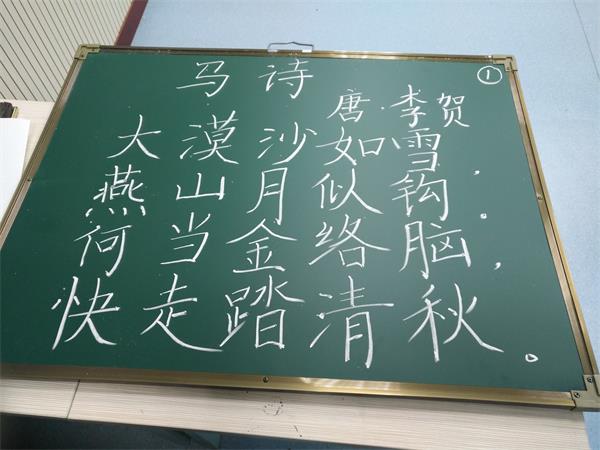 ①
马诗
唐·李贺
大漠沙如雪，
燕山月似钩。
何当金络脑，
快走踏清秋。